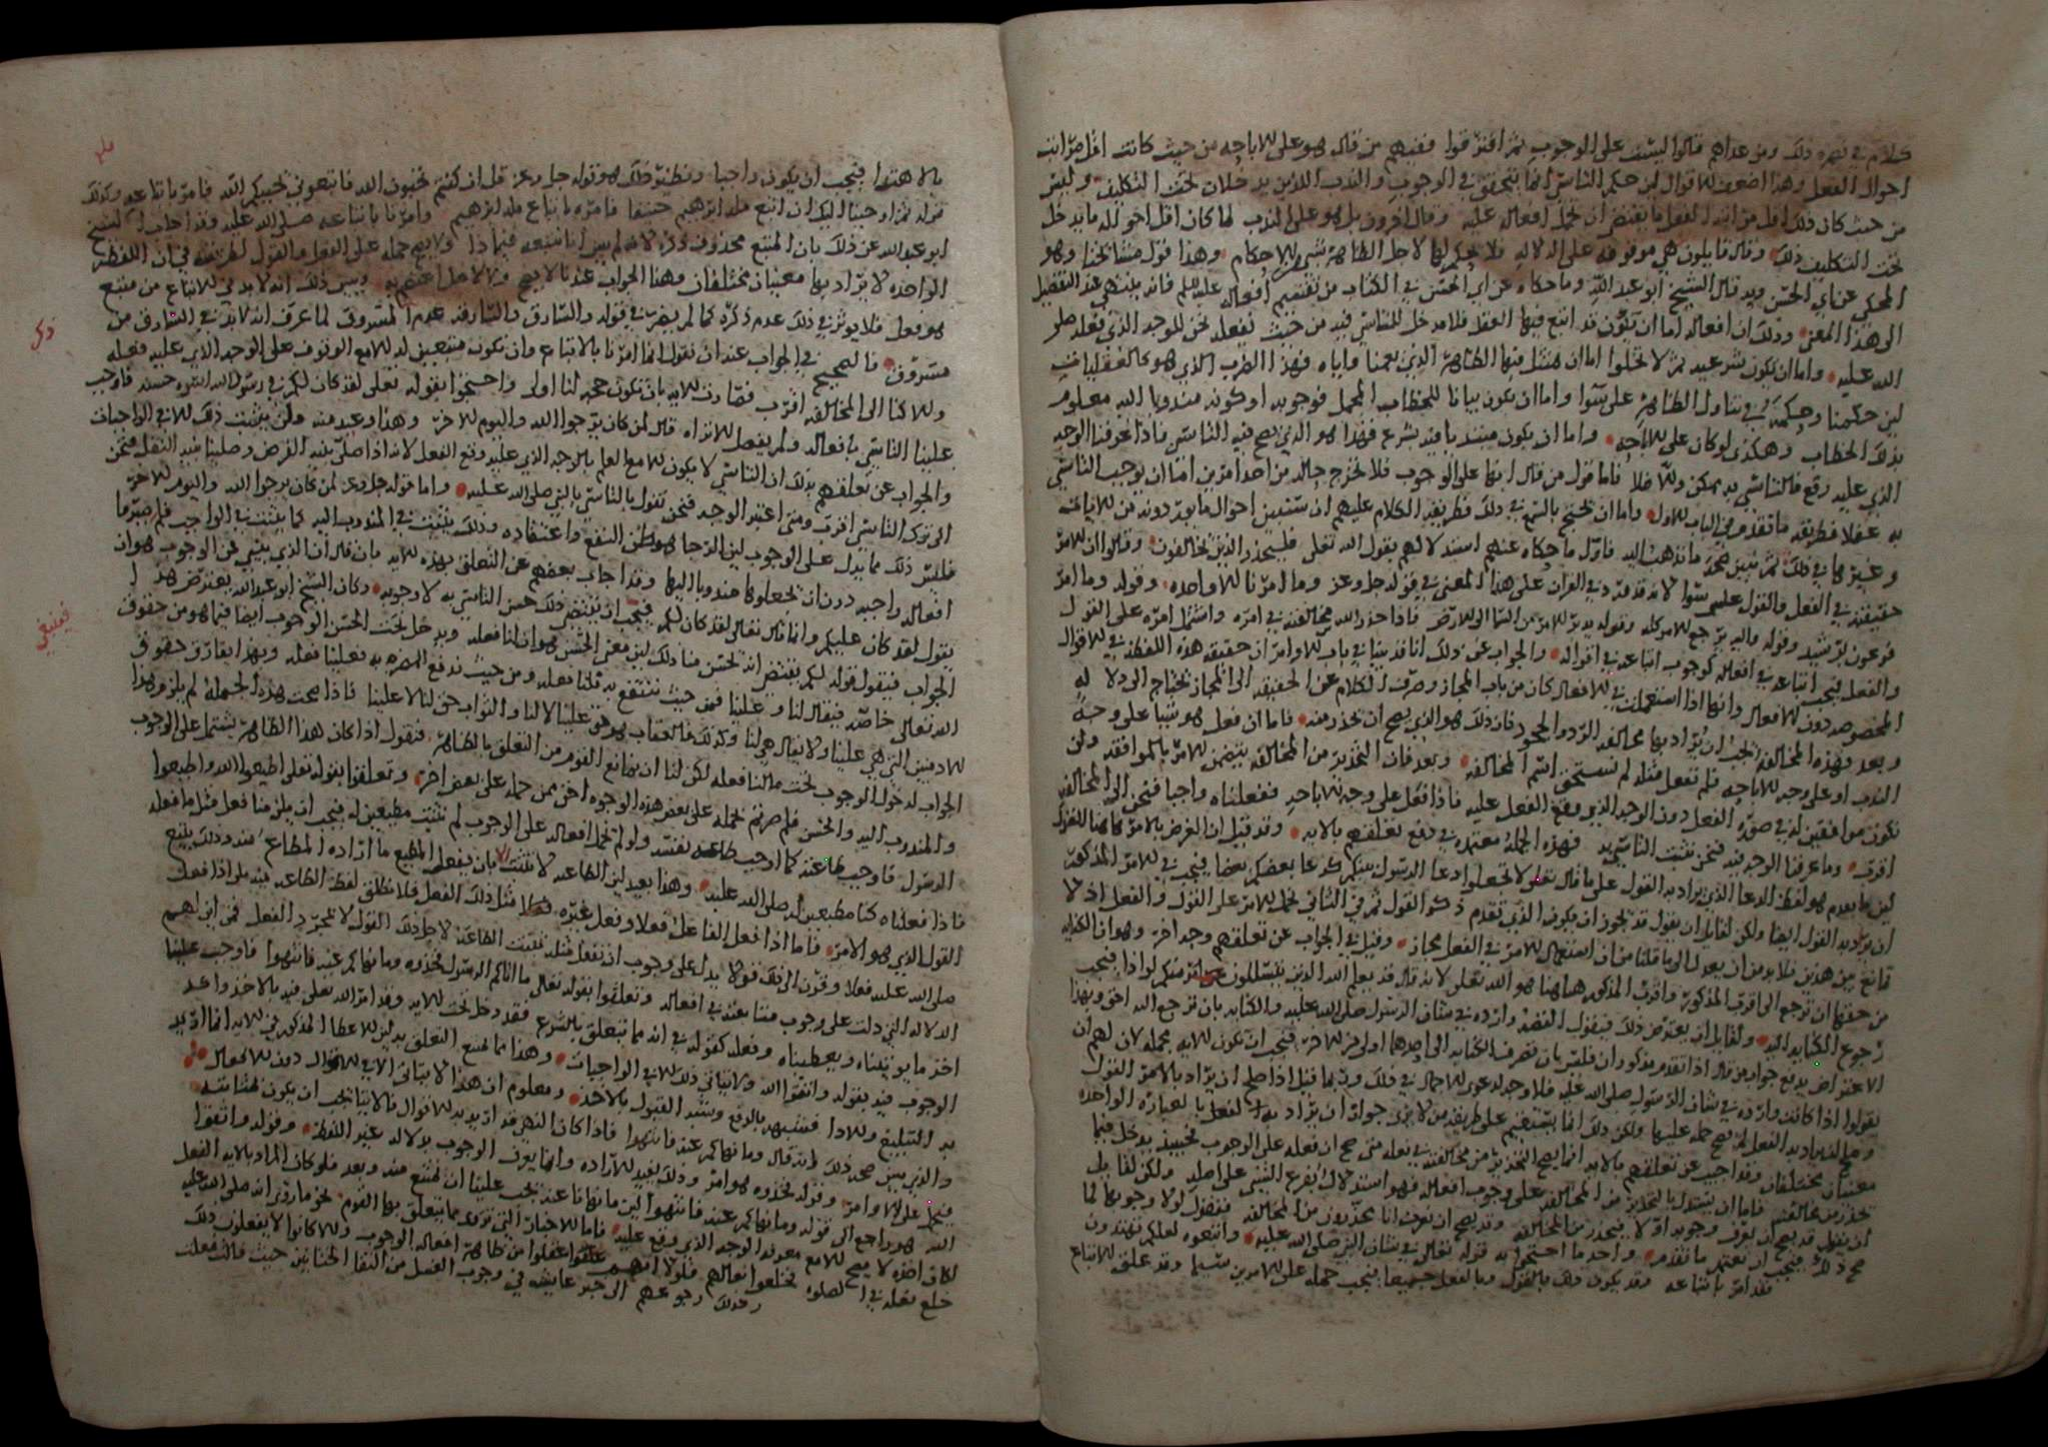 كلام في نصره ذلك ومن عداهم قالوا ليست على الوجوب ثم افترقوا فمنهم من قال هو على الاباحه من حيث كانت اقل مراتب
احوال الفعل وهذا اضعف الاقوال لان حكم التاسي انما يتحقق في الوجوب والندب اللذين يدخلان تحت التكليف وليس
من حيث كان ذلك اقل مراتب الفعل ما يقتضي ان تحمل افعاله عليه وقال اخرون بل هو على الندب لما كان اقل احواله ما يدخل
تحت التكليف ذلك وقال قايلون هي موقوفه على الدلاله فلا حكم لها لاجل الظاهر الاحكام وهذا قول مشائخنا وهو
المحكي عن ابي الحسن وبه قال الشيخ ابو عبد الله وما حكاه عن ابي الحسن في الكتاب من تقسيم افعاله عليه السلم فانه ينتهي عند التفصيل
الى هذا المعنى وذلك ان افعاله اما ان تكون قد اتبع فيها العقل فلا مدخل للتاسي فيه من حيث نفعله نحن للوجه الذي فعله صلى
الله عليه واما ان يكون شرعيه ثم لا تخلوا اما ان تمتثل فيها الظاهر الذي يعمنا واياه فهذا الضرب الذي هو كالعقليات
لان حكمنا وحكمه في تناول الظاهر على سوا واما ان يكون بيانا للخطاب المجمل فوجوبه او كونه مندوبا اليه معلوم
بذلك الخطاب وهكذى لو كان على الاباحه واما ان يكون مبتدا به شرع فهذا هو الذي يصح فيه التاسي فاذا عرفنا الوجه
الذي عليه وقع فالتاسي به يمكن والا فلا فاما قول من قال انها على الوجوب فلا تخرج حاله من احد امرين اما ان يوجب التاسي
به عقلا فطريقه ما تقدم في الباب الاول واما ان يحتج بالسمع في ذلك فطريقة الكلام عليهم ان نتبين احوال ما يوردونه من الايات
وغيرها في ذلك ثم نبين صحة ما نذهب اليه فاول ما حكاه عنهم استدلالهم بقول الله تعلى فليحذر الذين يخالفون وقالوا ان الامر
حقيقته في الفعل والقول على سوا لانه قد ورد في القران على هذا المعنى في قوله جل وعز وما امرنا الا واحده وقوله وما امر
فرعون برشيد وقوله واليه يرجع الامر كله وقوله يدبر الامر من السما الى الارض فاذا حذر الله من مخالفته في امره واشتمل امره على القول
والفعل فيجب اتباعه في افعاله كوجوب اتباعه في اقواله والجواب عن ذلك انا قد بينا في باب الاوامر ان حقيقه هذه اللفظة في الاقوال
المخصوصه دون الافعال وانها اذا استعملت في الافعال كان من باب المجاز وصرف الكلام عن الحقيقه الى المجاز يحتاج الى دلاله
وبعد فهذه المخالفة يجب ان يراد بها مخالفه الرد والجحود فان ذلك هو الذي يصح ان تحذر منه فاما ان فعل هو شيا على وجه
الندب او على وجه الاباحه فلم نفعل مثله لم نستحق اسم المخالفه وبعد فان التحذير من المخالفه يتضمن الامر بالموافقه ولن
نكون موافقين له في صورة الفعل دون الوجه الذي وقع الفعل عليه فاذا فعل على وجه الاباحه ففعلناه واجبا فنحن الى المخالفه
اقرب وما عرفنا الوجه فيه فنحن نثبت التاسي به فهذه الجملة معتمده في دفع تعلقهم بالايه وقد قيل ان الغرض بالامر هاهنا القول
لان ما تقدم هو لفظ الدعا الذي يراد به القول على ما قال تعلى لا تجعلوا دعا الرسول بينكم كدعا بعضكم بعضا فيجب في الامر المذكور
ان يراد به القول ايضا ولكن لقايل ان يقول قد يجوز ان يكون الذي تقدم ذكر القول ثم في الثاني تحمل الامر على القول والفعل اذ لا
مانع من هذين فلا بد من ان يعدل الى ما قلنا من ان استعمال الامر في الفعل مجاز وقيل في الجواب عن تعلقهم وجه اخر وهو ان الكنايه
من حقها ان ترجع الى اقرب المذكورين واقرب المذكور هاهنا هو الله تعلى لانه قال قد يعلم الله الذين يتسللون منكم لواذا فيجب
رجوع الكنايه اليه ولقايل ان يعترض ذلك فيقول القصد وارده في شان الرسول صلى الله عليه والكنايه بان ترجع اليه احق وبهذا
الاعتراض يدفع جواب من قال اذا تقدم مذكوران فليس بان تصرف الكنايه الى احدهما اولى من الاخر فيجب ان تكون الايه مجمله لان لهم ان
يقولوا اذا كانت وارده في شان الرسول صلى الله عليه فلا وجه لدعوى الاجمال في ذلك وربما قيل اذا صلح ان يراد بالامر القول
وصلح ان يراد به الفعل لم يصح حمله عليها ولكن ذلك انما يستقيم على طريقة من لا يرى جواز ان يراد بالعبارة الواحده
معنيان مختلفان وقد اجيب عن تعلقهم بالايه انما يصح التحذير من مخالفته في فعله متى صح ان فعله على الوجوب فحينئذ يدخل فيما
حذر من مخالفته فاما ان يستدل بالتحذير من المخالفه على وجوب افعاله فهو استدلال بفرع الشي على اصله ولكن لقايل
ان يقول قد يصح ان نعرف وجوبه اولا فيحذر من المخالفه وقد يصح ان نعرف انا محذرون من المخالفه فنقول لولا وجوبها لما
صح ذلك فيجب ان نعتمد ما تقدم واحد ما احتجوا به قوله تعالى في شان النبي صلى الله عليه واتبعوه لعلكم تهتدون
فقد امر باتباعه وقد يكون وهذا بالقول وبالفعل جميعا فيجب حمله على الامرين سيما وقد علق الاتباع
بالاهتدا فيجب ان يكون واجبا ونظير ذلك هو قوله جل وعز قل ان كنتم تحبون الله فاتبعوني يحببكم الله فامر باتباعه وكذلك
قوله ثم اوحينا اليك ان اتبع ملة ابرهيم حنيفا فامره باتباع ملة ابرهيم وامرنا باتباعه صلى الله عليه وقد اجاب الشيخ
ابو عبد الله عن ذلك بان المتبع محذوف ذكره لانه لم يبين انا نتبعه فيما ذا ولا يصح حمله على الفعل والقول لطريقته في ان اللفظه
الواحده لا يراد بها معنيان مختلفان وهذا الجواب عندنا لا يصح وبين ذلك انه لا بد في الاتباع من متبع
هو فعل فلا يوثر في ذلك عدم ذكره كما لم يضر في قوله والسارق والسارقه عدم المسروق لما عرف انه لا بد في السارق من
مسروق فالصحيح في الجواب عنه ان نقول انما امرنا بالاتباع وان نكون متبعين له الا مع الوقوف على الوجه الذي عليه فعله
والا كنا الى المخالفه اقرب فصارت الايه بان تكون حجه لنا اولى واحتجوا بقوله تعلى لقد كان لكم في رسول الله اسوه حسنه فاوجب
علينا التاسي بافعاله ولم يفصل الا تراه قال لمن كان يرجوا الله واليوم الاخر وهذا وعيد منه ولن يثبت ذلك الا في الواجبات
والجواب عن تعلقهم بذلك ان التاسي لا يكون الا مع العلم بالوجه الذي عليه وقع الفعل لانه اذا صلى بنيه الفرض وصلينا بنيه النفل فنحن
الى ترك التاسي اقرب ومتى اعتبر الوجه فنحن نقول بالتاسي بالنبي صلى الله عليه واما قوله جل وعز لمن كان يرجوا الله واليوم الاخر
فليس ذلك مما يدل على الوجوب لان الرجا هو ظن النفع واعتقاده وذلك يثبت في المندوب اليه كما يثبت في الواجب فلم صيرتم
افعاله واجبه دون ان تجعلوها مندوبا اليها وقد اجاب بعضهم عن التعلق بهذه الايه بان قال ان الذي ينبي عن الوجوب هو ان
يقول لقد كان عليكم وانما قال تعالى لقد كان لكم فيجب ان يقتضي ذلك حسن التاسي به لا وجوبه وكان الشيخ ابو عبد الله يعترض هذا
الجواب فيقول قوله لكم يقتضي انه لحسن منا ذلك لان معنى الحسن هو ان لنا فعله ويدخل تحت الحسن الوجوب ايضا فيما هو من حقوق
الله تعالى خاصه فيقال لنا وعلينا فمن حيث ننتفع به قلنا فعله ومن حيث ندفع المضره به فعلينا فعله وبهذا يفارق حقوق
الادميين التي هي علينا ولا يقال هي لنا وكذلك فالعقاب هو حق علينا لا لنا والثواب حق لنا لا علينا فاذا صحت هذه الجملة لم يلزم هذا
الجواب لدخول الوجوب تحت ما لنا فعله لكن لنا ان نمانع القوم من التعلق بالظاهر فنقول اذا كان هذا الظاهر يشتمل على الوجوب
والمندوب اليه والحسن فلم صرتم تحمله على بعض هذه الوجوه احق ممن حمله على بعض اخر وتعلقوا بقوله تعلى اطيعوا الله واطيعوا
الرسول فاوجب طاعته كما اوجب طاعة نفسه ولو لم تحمل افعاله على الوجوب لم نثبت مطيعين له فيجب ان يلزمنا فعل مثل ما فعله
فاذا فعلناه كنا مطيعين له صلى الله عليه وهذا بعيد لان الطاعه لا تثبت الا بان يفعل المطيع ما اراده المطاع منه وذلك يتبع
القول الذي هو الامر فاما اذا فعل الفاعل فعلا وفعل غيره مثل ذلك الفعل فلا تطلق لفظ الطاعه فيه فلو اذا فعل
صلى الله عليه فعلا وقرن الى فعله قولا يدل على وجوب ان نفعل مثله تثبت الطاعة لاجل ذلك القول لا لمجرد الفعل فمن اين لهم
الدلاله التي دلت على وجوب متابعته في افعاله وتعلقوا بقوله تعالى ما اتاكم الرسول فخذوه وما نهاكم عنه فانتهوا فاوجب علينا
اخذ ما يوتيناه ويعطيناه وفعله كقوله في انه مما يتعلق بالشرع فقد دخل تحت الايه وقد امر الله تعلى فيه بالاخذ واعد
الوجوب فيه بقوله واتقوا الله ولا يتاتى ذلك الا في الواجبات وهذا مما يمنع التعلق به لان الاعطا المذكور في الايه انما اريد
به التبليغ والادا فشبهه بالدفع وشبه القبول بالاخذ ومعلوم ان هذا لا يتاتى الا في الاقوال دون الافعال
والذي يبين صحه ذلك انه قال وما نهاكم عنه فانتهوا فاذا كان النهي قد اريد به الاقوال فالاتيان يجب ان يكون بمثابته
فيحمل على الاوامر وقوله فخذوه هو امر وذلك يفيد الاراده وانما يعرف الوجوب بدلاله غير اللفظ وقوله واتقوا
الله هو راجع الى قوله وما نهاكم عنه فانتهوا لان ما نهانا عنه يجب علينا ان نمتنع منه وبعد فلو كان المراد بالايه الفعل
لكان اخذه لا يصح الا مع معرفة الوجه الذي وقع عليه فاما الاخبار التي تروى مما يتعلق بها القوم نحو ما روي انه صلى الله عليه
خلع نعله في الصلوه فخلعوا نعالهم فلولا انهم عقلوا من ظاهر افعاله الوجوب والا كانوا لا يفعلون ذلك
وكذلك رجوعهم الى خبر عايشه في وجوب الغسل من التقا الختانين حيث قالت فعلت